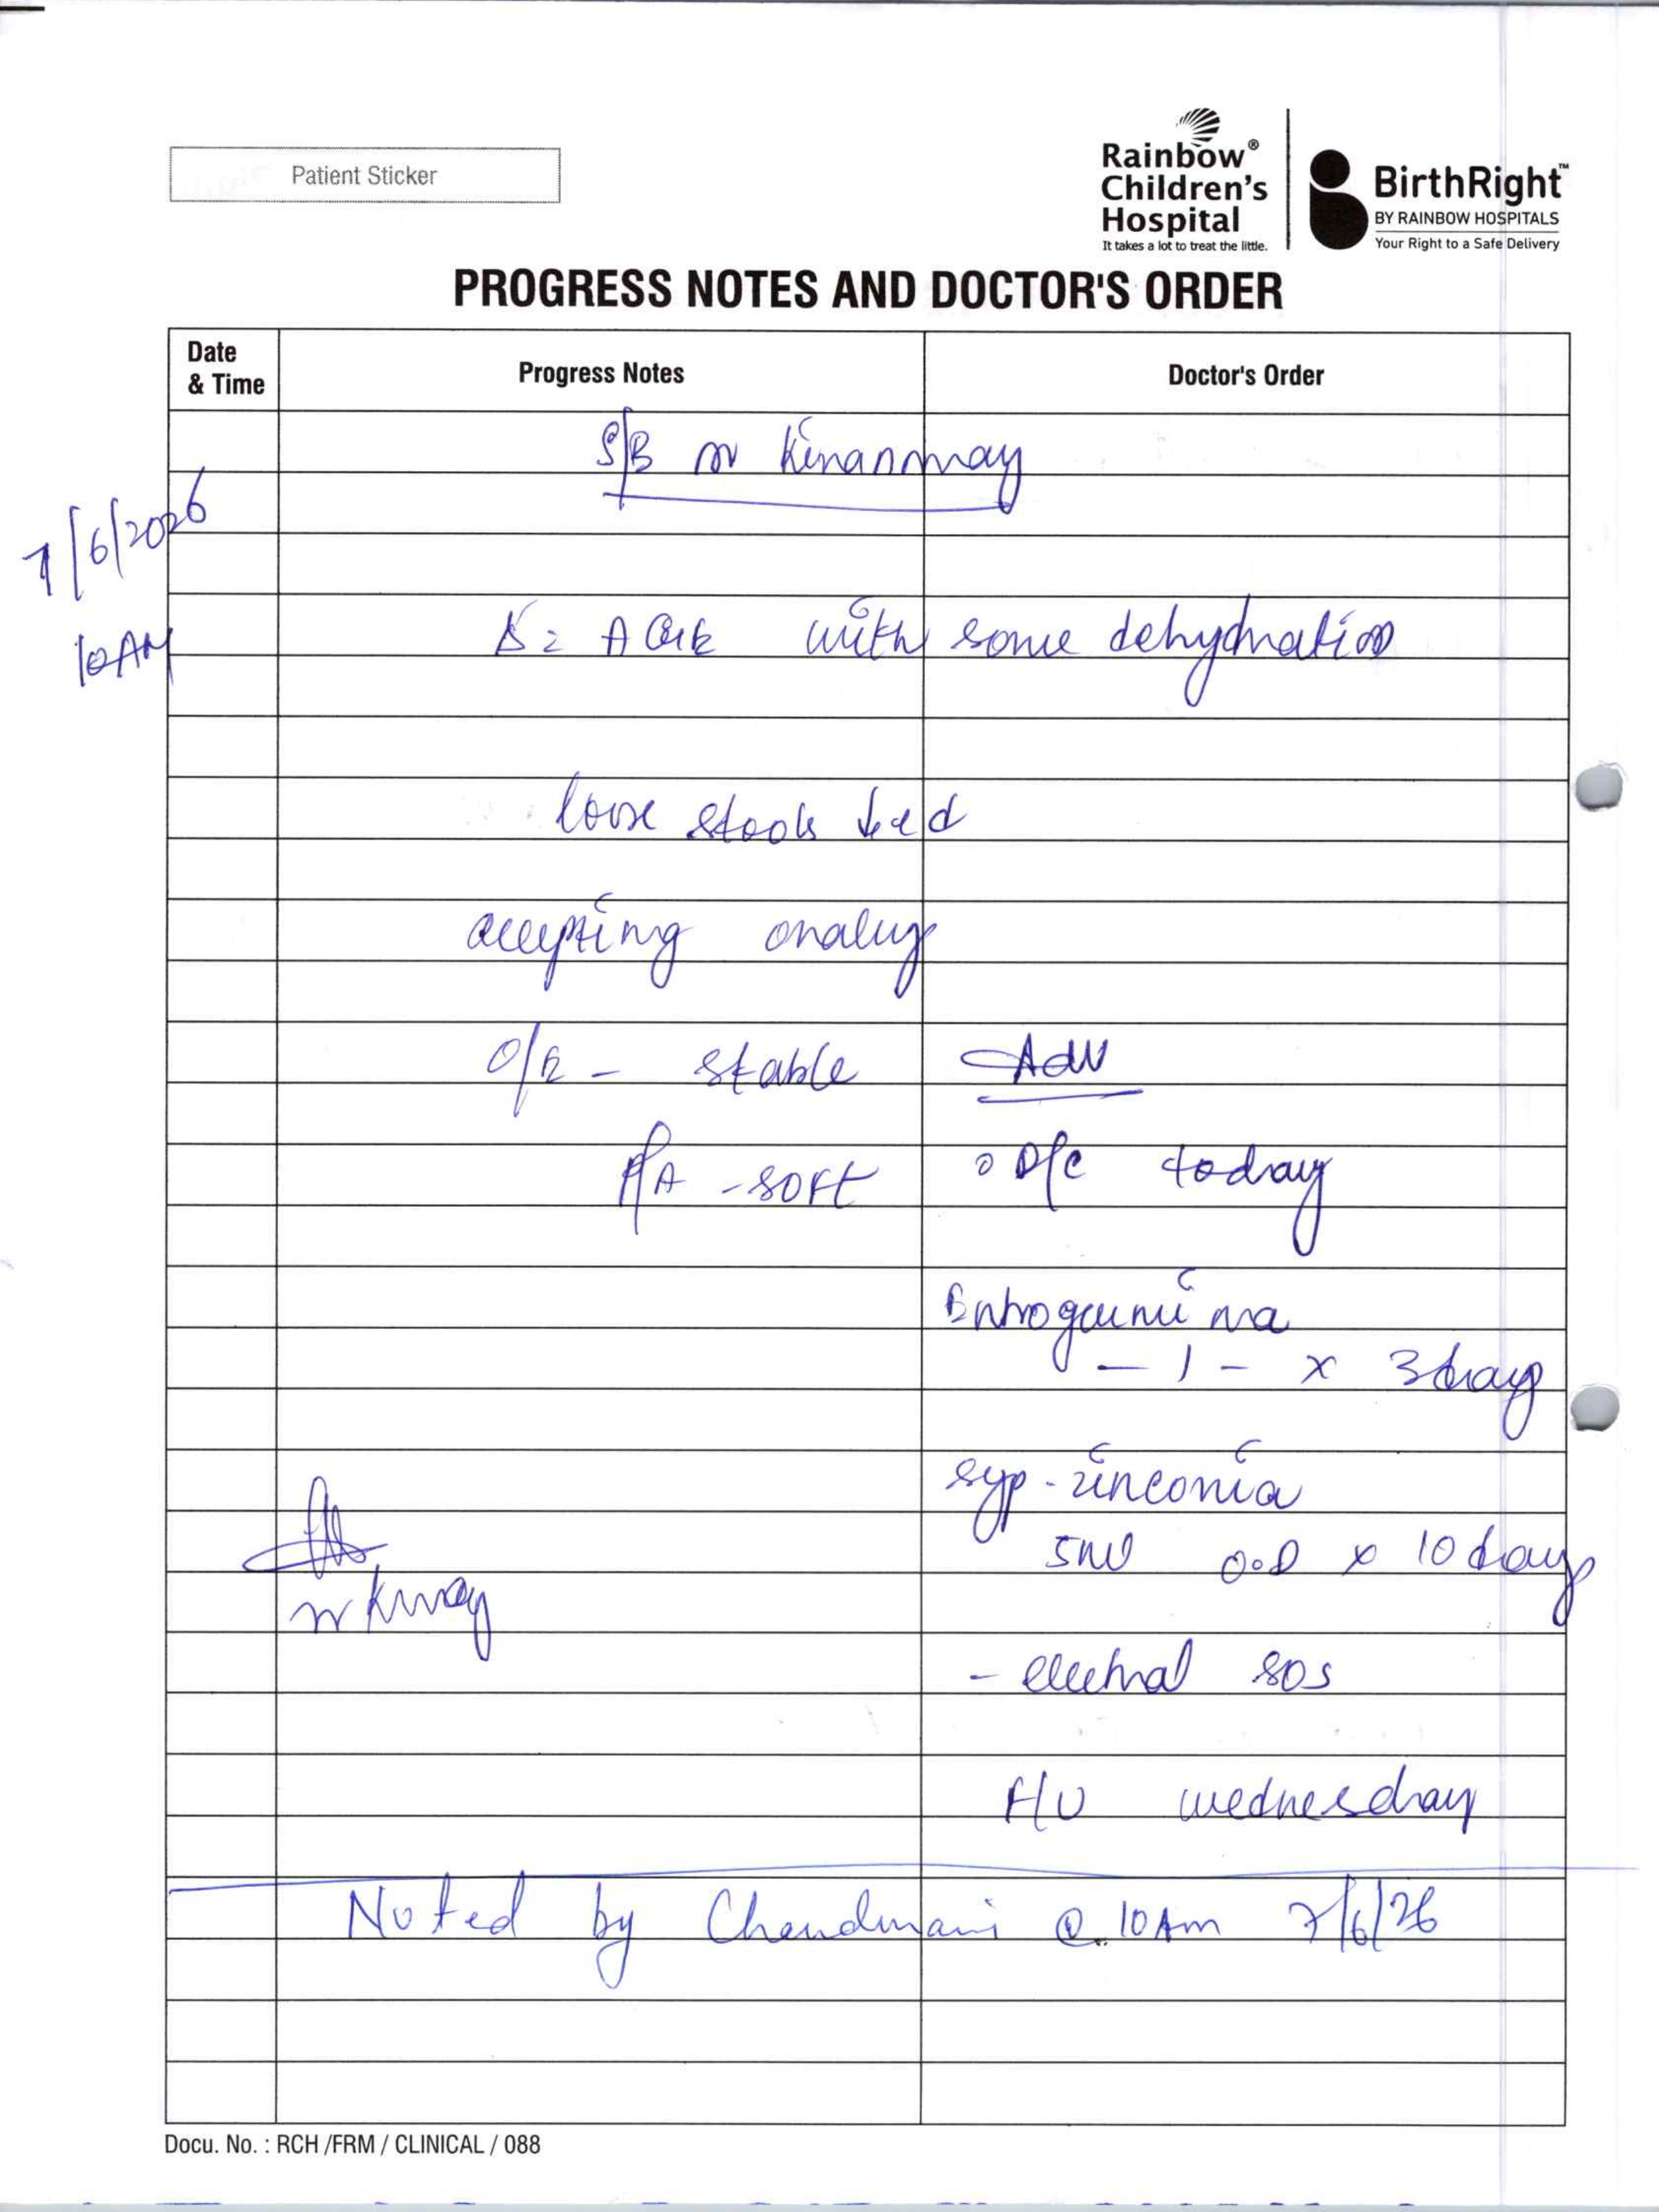 Patient Sticker
Rainbow®
Children's
Hospital
It takes a lot to treat the little.
BirthRight™
BY RAINBOW HOSPITALS
Your Right to a Safe Delivery
PROGRESS NOTES AND DOCTOR'S ORDER
Date & Time
Progress Notes
Doctor's Order
S/B Dr
7/6/2026
10AM
Δ: AGE with some dehydration
loose stools
accepting orally
O/E - stable
P/A - soft
Adv
D/C today
Entrogermina
- 1 - x 3 days
syp. zinconia
5ml O.D x 10 days
- electral SOS
F/U wednesday
Noted by @ 10Am 7/6/26
Docu. No. : RCH /FRM / CLINICAL / 088